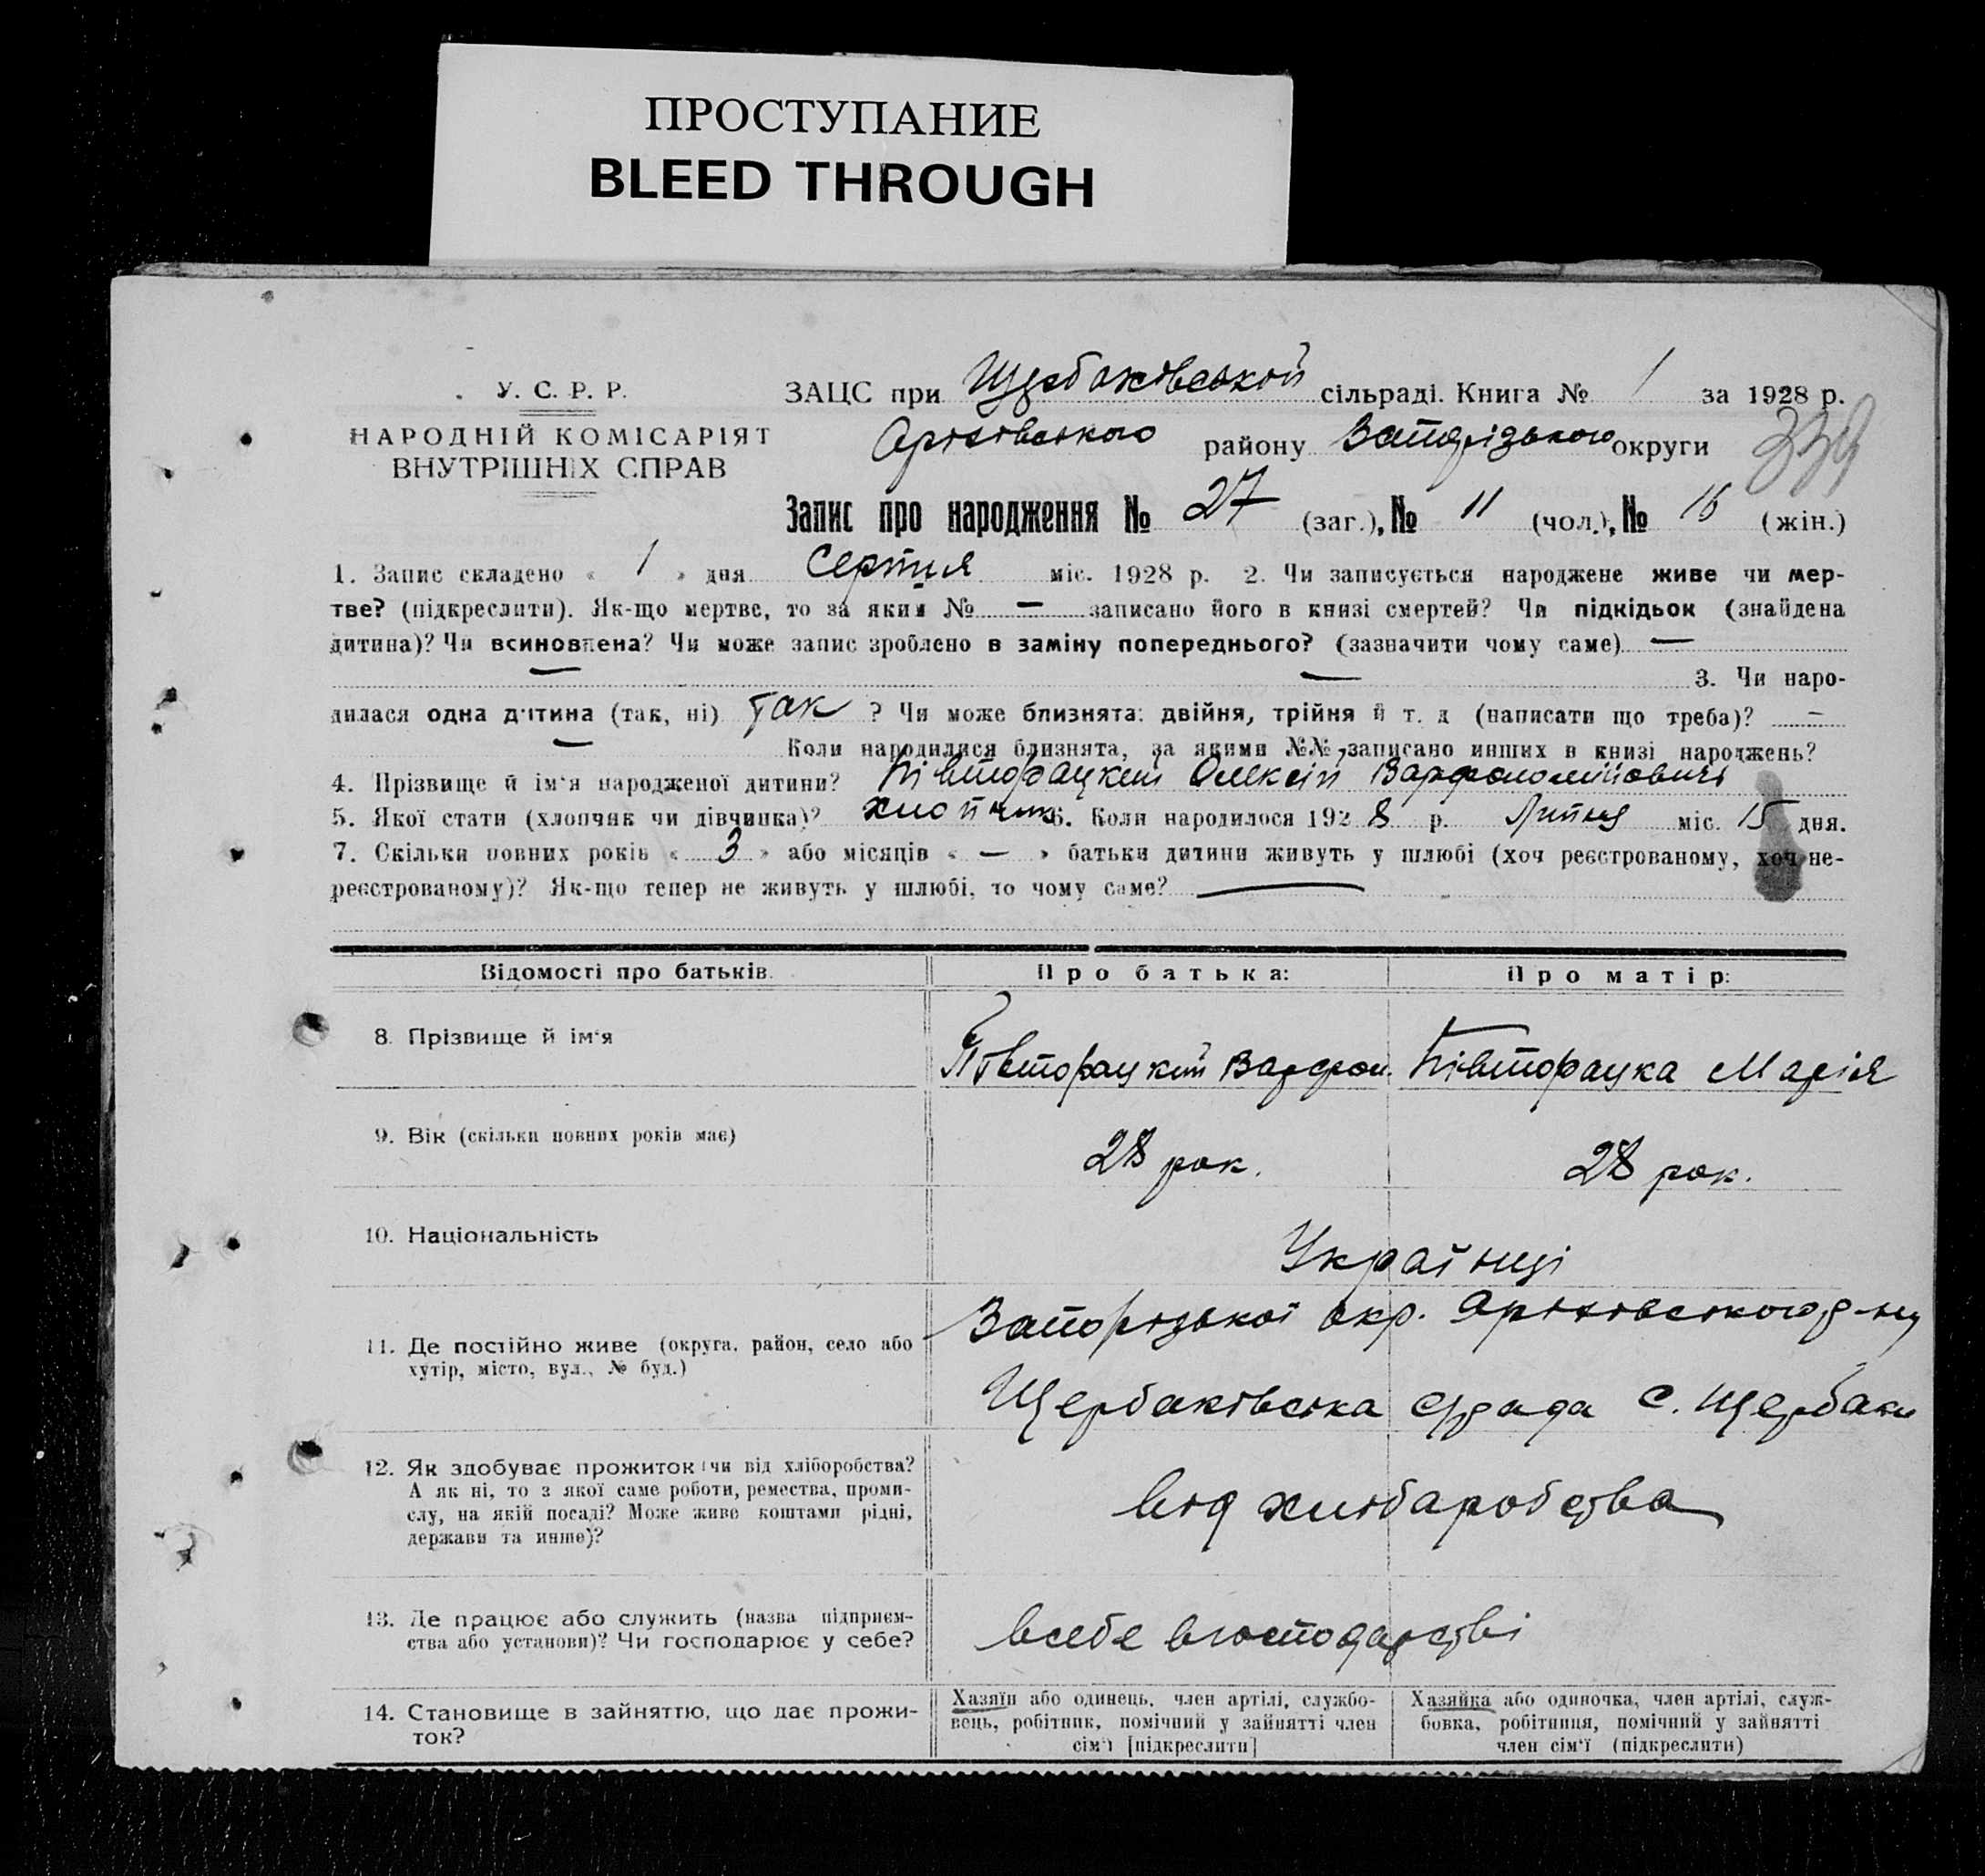 ПРОСТУПАНИЕ
BLEED THROUGH
У. С. Р. Р.
НАРОДНІЙ КОМІСАРІЯТ
ВНУТРІШНІХ СПРАВ
ЗАЦС при Щербаківській сільраді. Книга № 1 за 1928 р.
Оріхівського району Запорізького округи
339
Запис про народження № 27 (заг.), № 11 (чол.), № 16 (жін.)
1. Запис складено « 1 » дня Серпня міс. 1928 р. 2. Чи записується народжене живе чи мер-
тве? (підкреслити). Як-що мертве, то за яким № — записано його в книзі смертей? Чи підкідьок (знайдена
дитина)? Чи всиновлена? Чи може запис зроблено в заміну попереднього? (зазначити чому саме) —
— — 3. Чи наро-
дилася одна дитина (так, ні) Так ? Чи може близнята: двійня, трійня й т. д (написати що треба)? —
— Коли народилися близнята, за якими №№ записано инших в книзі народжень?
4. Прізвище й ім'я народженої дитини? Півторацкий Олексій Варфоломійович
5. Якої стати (хлопчик чи дівчинка)? хлопчик 6. Коли народилося 192 8 р. Липня міс. 15 дня.
7. Скільки повних років « 3 » або місяців « — » батьки дитини живуть у шлюбі (хоч реєстрованому, хоч не-
реєстрованому)? Як-що тепер не живуть у шлюбі, то чому саме? —
Відомості про батьків. Про батька: Про матір:
8. Прізвище й ім'я Півторацкий Варфол. Півторацка Марія
9. Вік (скільки повних років має) 28 рок. 28 рок.
10. Національність Українці
11. Де постійно живе (округа, район, село або
хутір, місто, вул., № буд.)
Запорізької окр. Оріхівського р-ну
Щербаківська с/рада с. Щербаки
12. Як здобуває прожиток (чи від хліборобства?
А як ні, то з якої саме роботи, ремества, проми-
слу, на якій посаді? Може живе коштами рідні,
держави та инше)?
від хліборобства
13. Де працює або служить (назва підприєм-
ства або установи)? Чи господарює у себе?
в себе в господарстві
14. Становище в зайняттю, що дає прожи-
ток?
Хазяїн або одинець, член артілі, службо-
вець, робітник, помічний у зайнятті член
сім'ї [підкреслити]
Хазяйка або одиночка, член артілі, служ-
бовка, робітниця, помічний у зайнятті
член сім'ї (підкреслити)